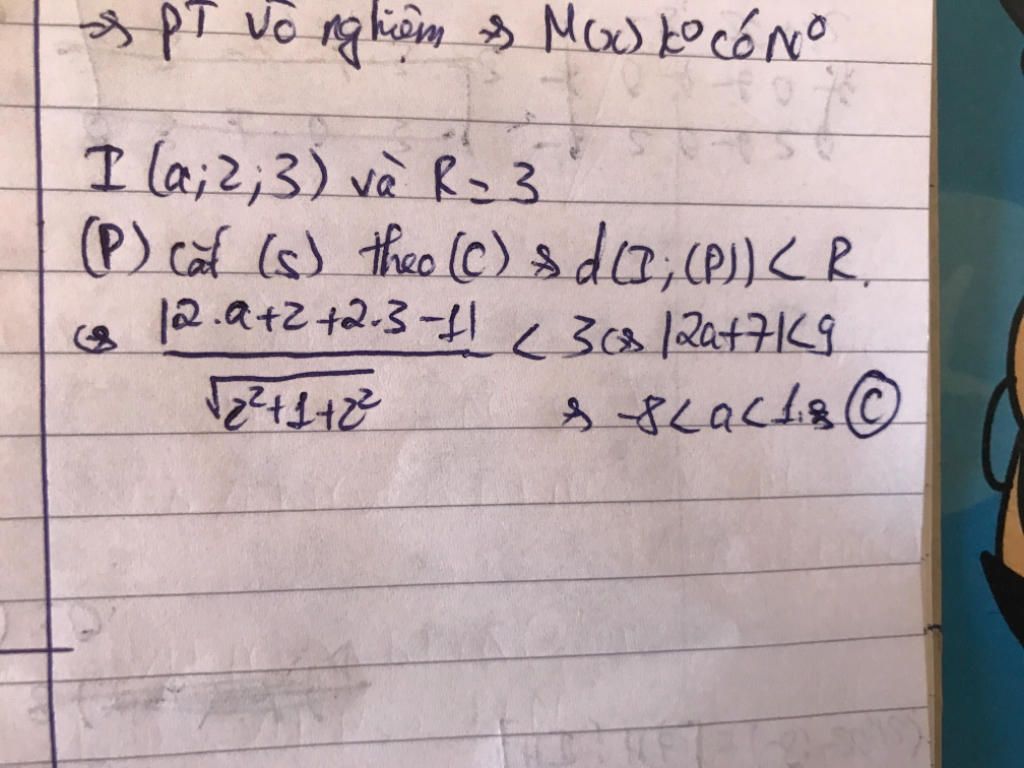 => PT vô nghiệm => M(x) ko có No
I (a;2;3) và R = 3
(P) cắt (S) theo (C) => d(I;(P)) < R.
<=> |2.a+2+2.3-1| / √2²+1+2² < 3 <=> |2a+7|<9
=> -8<a<1. => Ⓒ